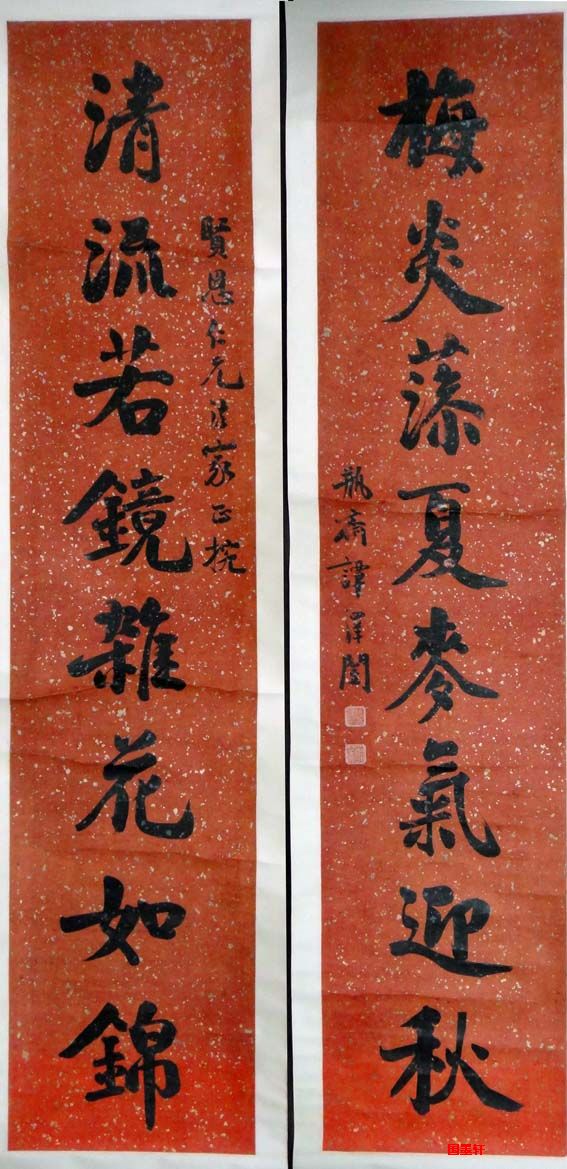 梅炎藻夏麥氣迎秋
瓶齋譚澤闓
賢恩仁兄法家正捥
清流若鏡雜花如錦
国墨轩